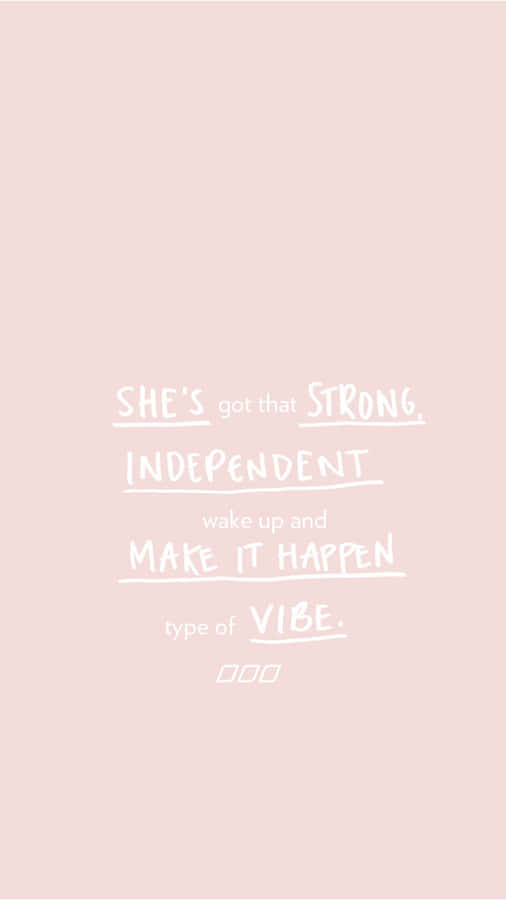 SHE'S got that STRONG,
INDEPENDENT
wake up and
MAKE IT HAPPEN
type of VIBE.